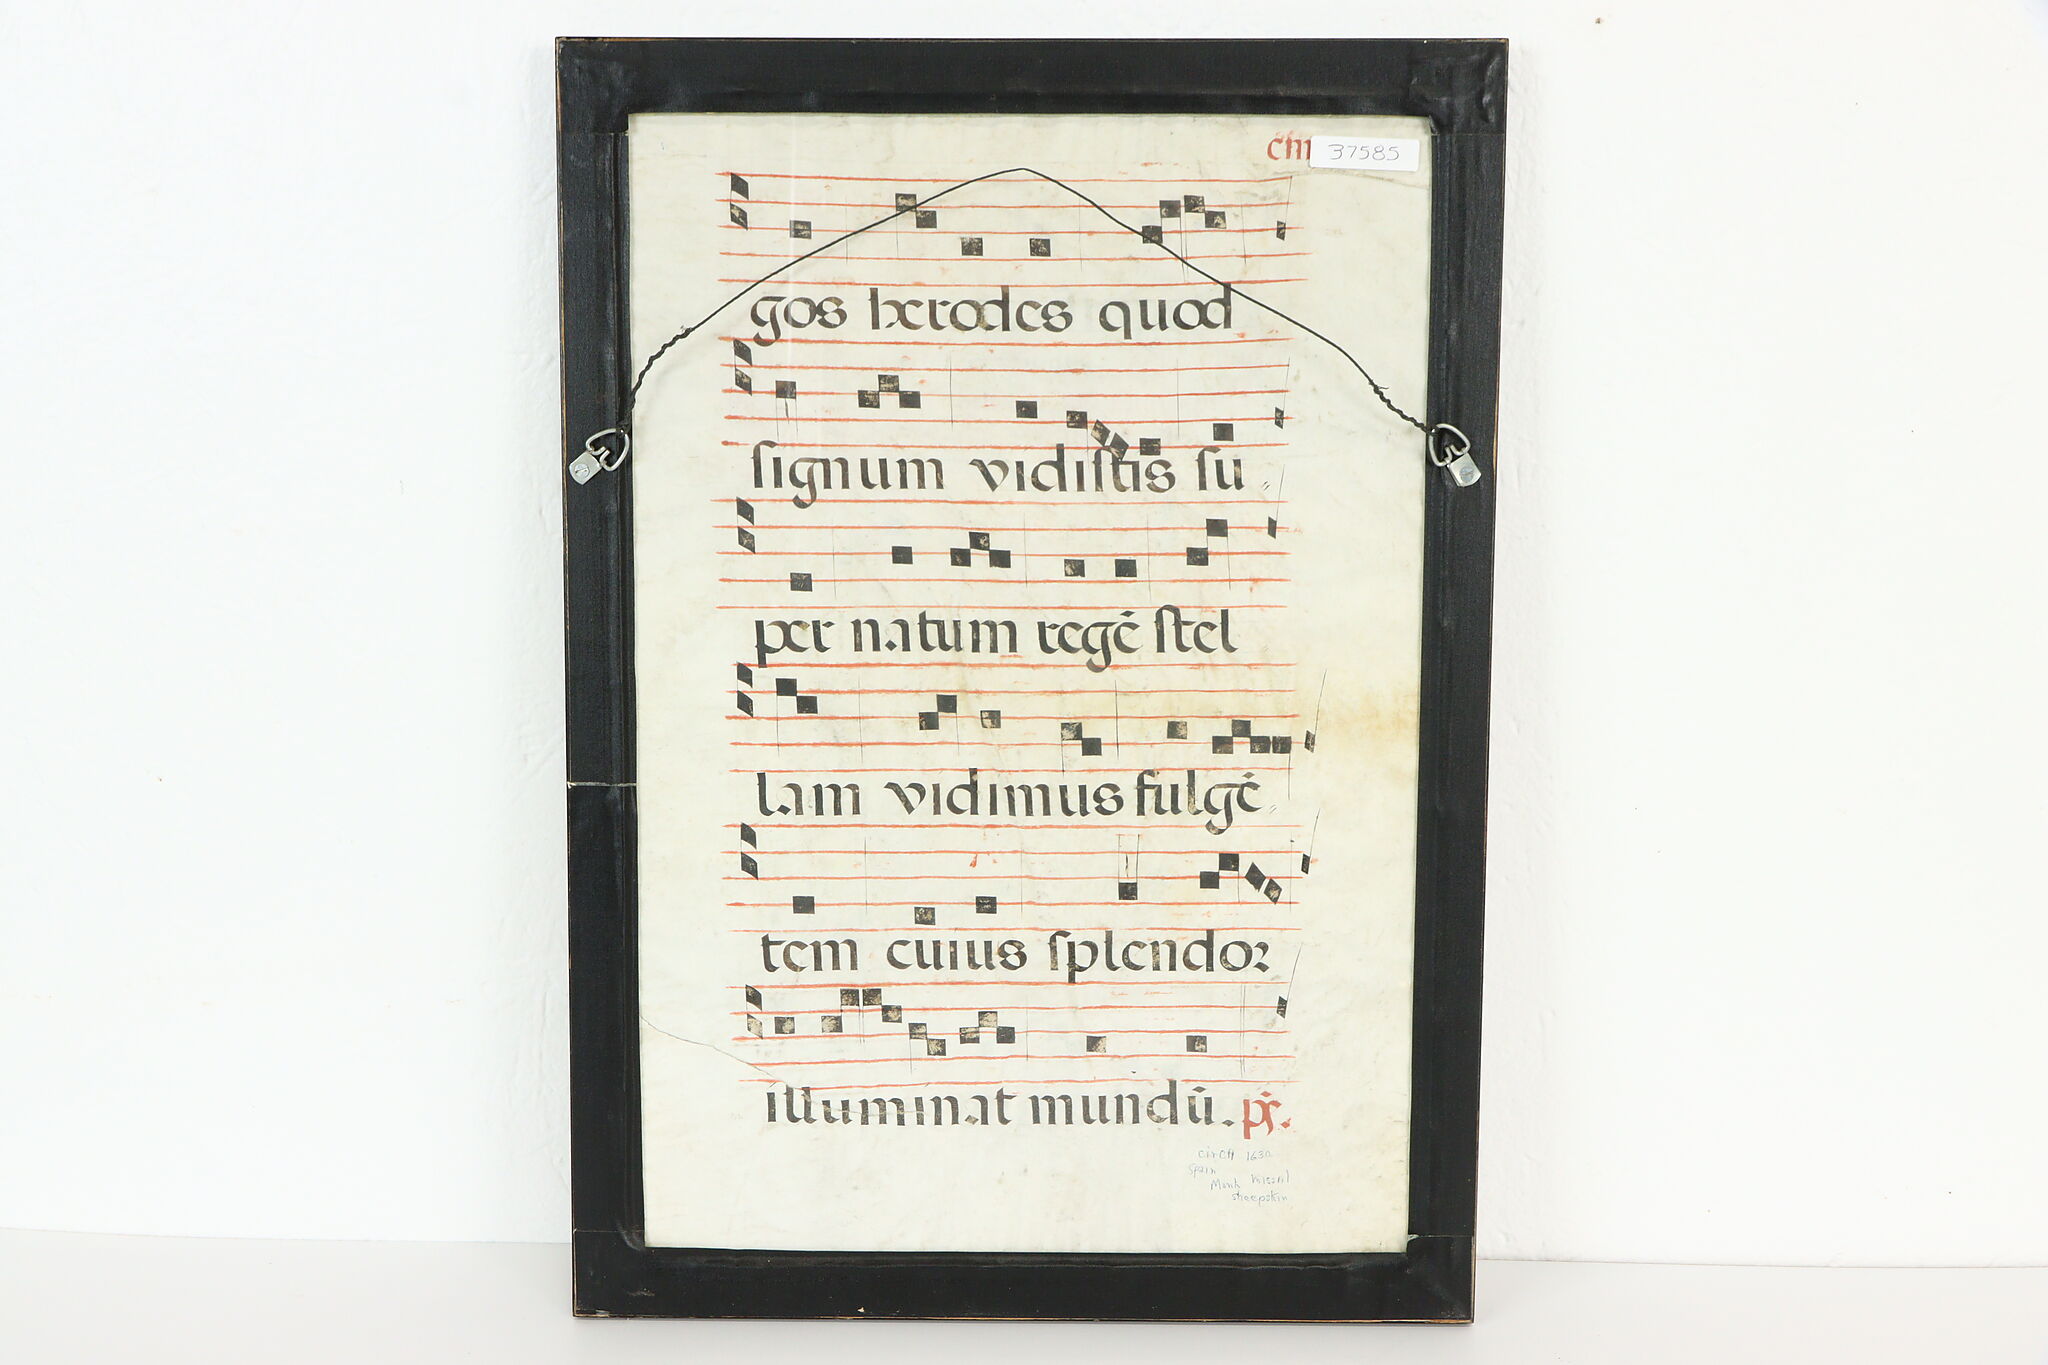 cm
37585
gos herodes quod
signum vidistis su〃
per natum regē stel
lam vidimus fulgē〃
tem cuius splendor
illuminat mundū. ps.
circa 1630
Spain
Monk Missal
sheepskin